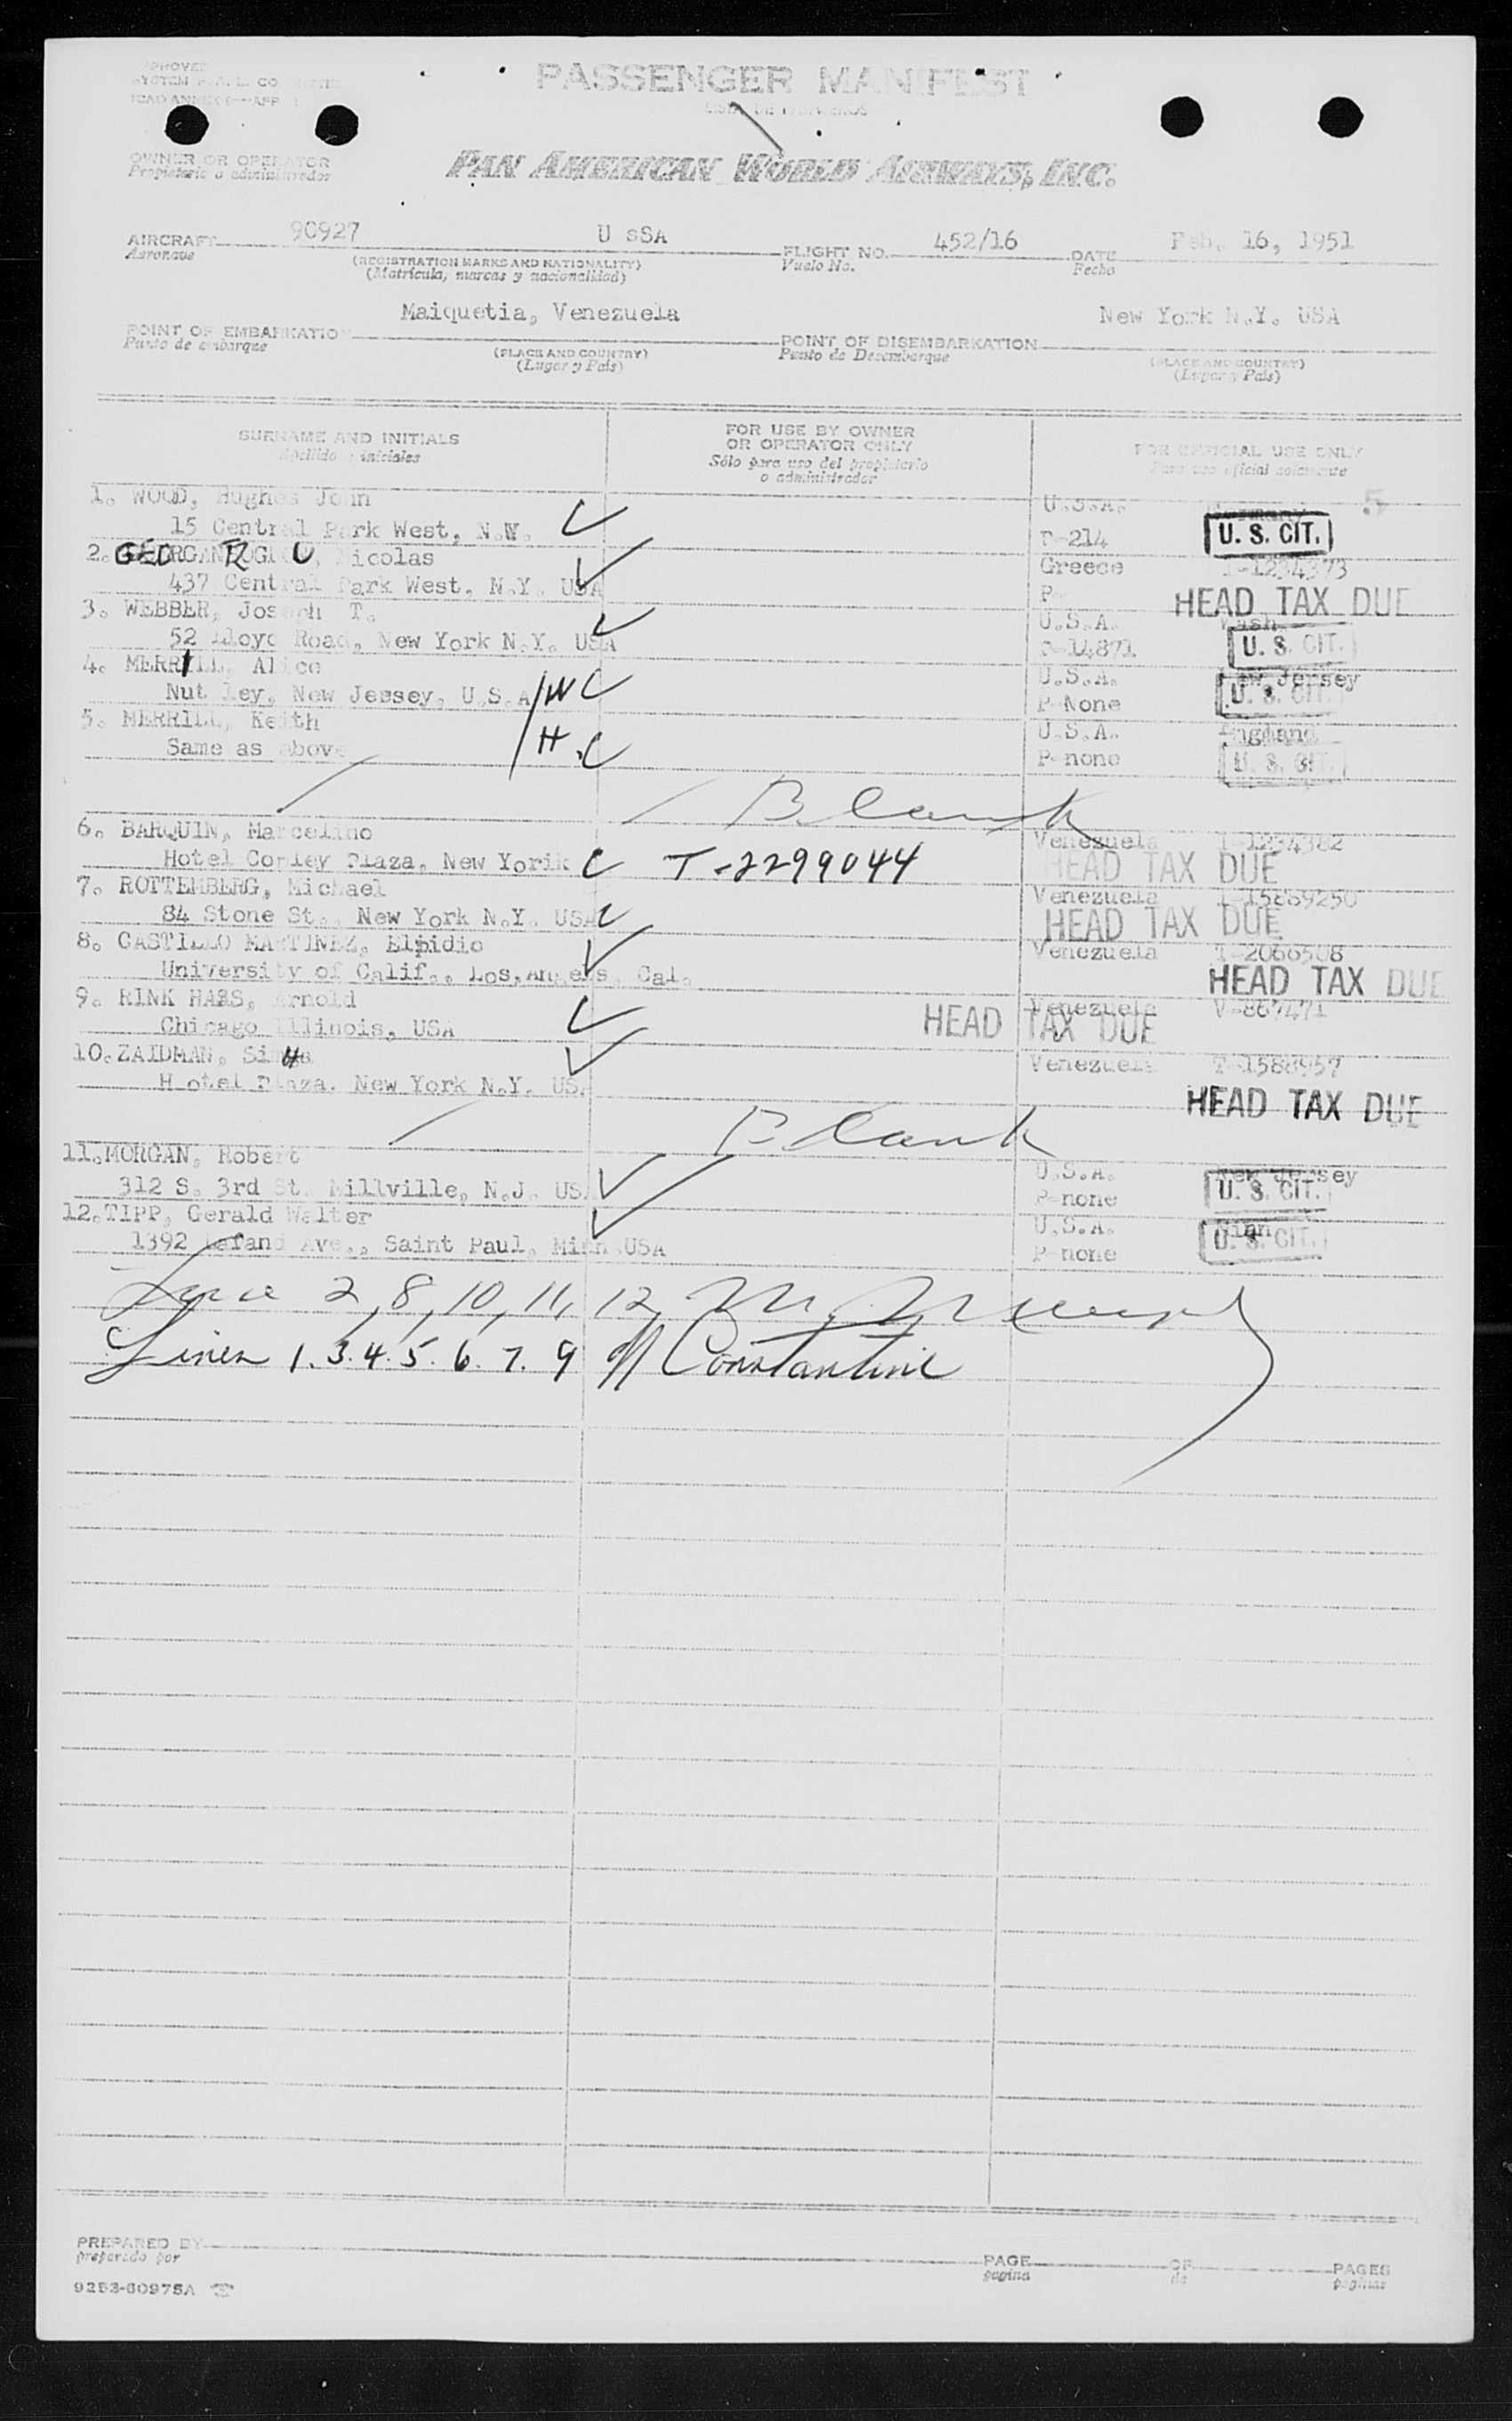 PASSENGER MANIFEST
OWNER OR OPERATOR
Propietario o administrador
PAN AMERICAN WORLD AIRWAYS, INC.
AIRCRAFT 90927 U sSA FLIGHT NO. 452/16 DATE Feb. 16, 1951
Aeronave (REGISTRATION MARKS AND NATIONALITY) Vuelo No. Fecha
(Matrícula, marcas y nacionalidad)
Maiquetia, Venezuela New York N.Y. USA
POINT OF EMBARKATION POINT OF DISEMBARKATION
Punto de embarque (PLACE AND COUNTRY) Punto de Desembarque (PLACE AND COUNTRY)
(Lugar y País) (Lugar y País)
SURNAME AND INITIALS FOR USE BY OWNER OR OPERATOR ONLY FOR OFFICIAL USE ONLY
Apellido e iniciales Sólo para uso del propietario o administrador Para uso oficial solamente
1. WOOD, Hughes John U.S.A. Germany 5
15 Central Park West, N.Y. P-214 U. S. CIT.
2. Nicolas Greece
437 Central Park West, N.Y. USA P- HEAD TAX DUE
3. WEBBER, Joseph T. U.S.A. Wash
52 Lloyd Road, New York N.Y. USA P-14871 U. S. CIT.
4. MERRILL, Alice U.S.A. New Jersey
Nut ley, New Jessey, U.S.A /W P-None U. S. CIT.
5. MERRILL, Keith U.S.A. England
Same as above /H. P-none U. S. CIT.
Blank
6. BARQUIN, Marcelino Venezuela T-1234382
Hotel Copley Plaza, New Yorik T-2299044 HEAD TAX DUE
7. ROTTEMBERG, Michael Venezuela T-15889250
84 Stone St., New York N.Y. USA HEAD TAX DUE
8. CASTILLO MARTINEZ, Elpidio Venezuela T-2066508
University of Calif., Los, Angels, Cal. HEAD TAX DUE
9. RINK HABS, Arnold Venezuela V-867471
Chicago Illinois, USA HEAD TAX DUE
10. ZAIDMAN, Venezuela T-1588957
H otel Plaza. New York N.Y. USA HEAD TAX DUE
Blank
11. MORGAN, Robert U.S.A. New Jersey
312 S. 3rd St. Millville, N.J. USA P-none U. S. CIT.
12. TIPP, Gerald Walter U.S.A. Minn
1392 Ave., Saint Paul, Minn USA P-none U. S. CIT.
2, 8, 10, 11, 12
Lines 1. 3. 4. 5. 6. 7. 9 Constantine
PREPARED BY PAGE OF PAGES
preparado por pagina de páginas
9253-60975A